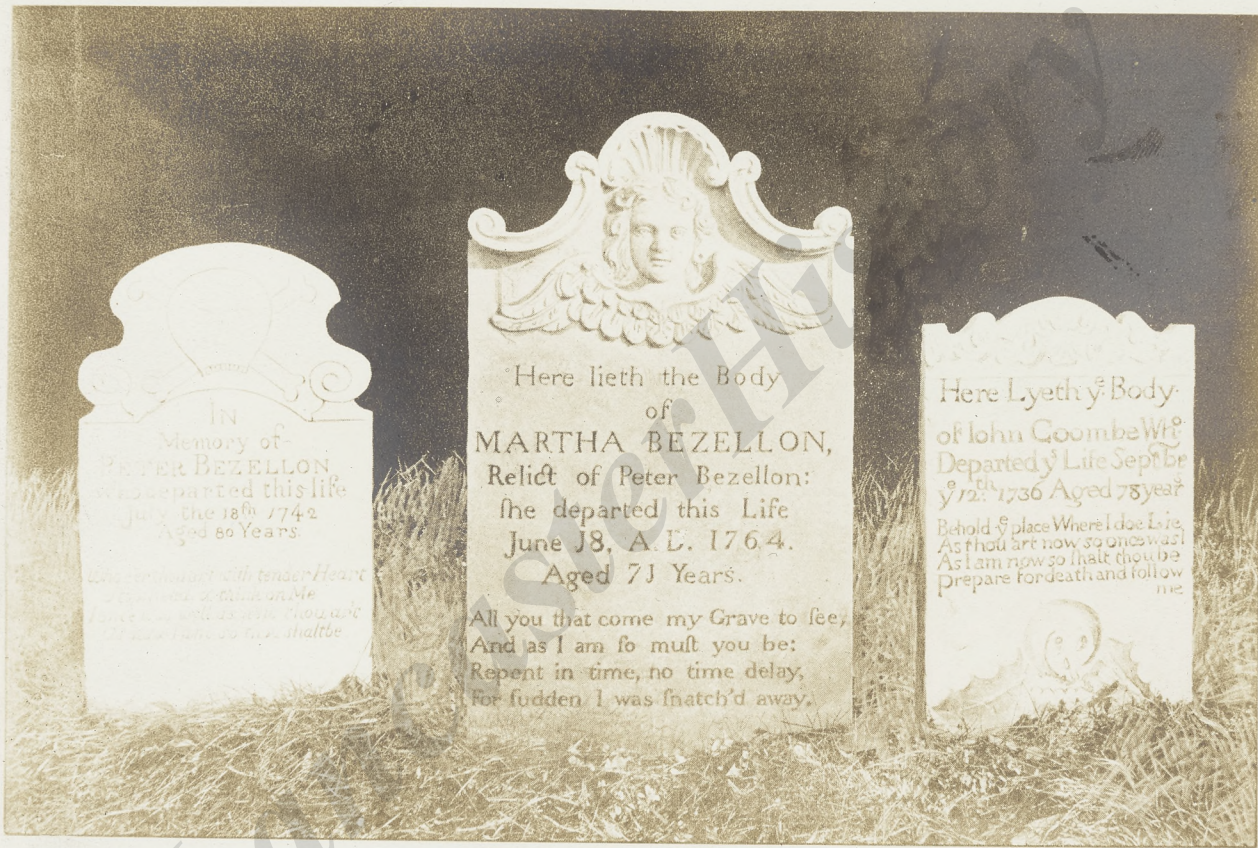 IN
Memory of
PETER BEZELLON
who departed this life
July the 18th 1742
Aged 80 Years.
with tender Heart
on Me
as well as
shaltbe
Here lieth the Body
of
MARTHA BEZELLON,
Relict of Peter Bezellon:
ſhe departed this Life
June J8, A.D. 1764.
Aged 7J Years.
All you that come my Grave to ſee,
And as I am ſo muſt you be:
Repent in time, no time delay,
For ſudden I was ſnatch'd away.
Here Lyeth yͤ Body
of Iohn Coombe Who
Departed yͤ Life Septbe
yͤ 12th 1736 Aged 78 year
Behold yͤ place Where I doe Lie
As thou art now so once was I
As I am now so ſhalt thou be
prepare for death and follow
me
Lancaster History